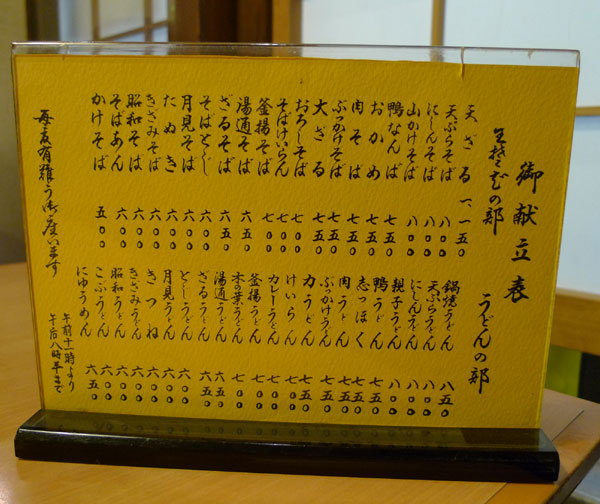 御献立表
生そばの部
天ざる 一、一五〇
天ぷらそば 八〇〇
にしんそば 八〇〇
山かけそば 八〇〇
鴨なんば 七五〇
おかめ 七五〇
肉そば 七〇〇
ぶっかけそば 七〇〇
大ざる 七五〇
おろしそば 七五〇
そばけいらん 七〇〇
釜揚そば 七〇〇
湯通そば 六五〇
ざるそば 六五〇
そばとじ 六〇〇
月見そば 六〇〇
たぬき 六〇〇
きざみそば 六〇〇
昭和そば 六〇〇
そばあん 六〇〇
かけそば 五〇〇
うどんの部
鍋焼うどん 八五〇
天ぷらうどん 八〇〇
にしんうどん 八〇〇
親子うどん 八〇〇
鴨うどん 七五〇
志っぽく 七五〇
肉うどん 七五〇
ぶっかけうどん 七〇〇
力うどん 七五〇
けいらん 七〇〇
カレーうどん 七〇〇
釜揚うどん 七〇〇
木の葉うどん 七〇〇
湯通うどん 六五〇
ざるうどん 六五〇
とじうどん 六〇〇
月見うどん 六〇〇
きつね 六〇〇
きざみうどん 六〇〇
昭和うどん 六〇〇
こぶうどん 六〇〇
にゅうめん 六五〇
毎度有難う御座います
午前十一時より
午后八時半まで